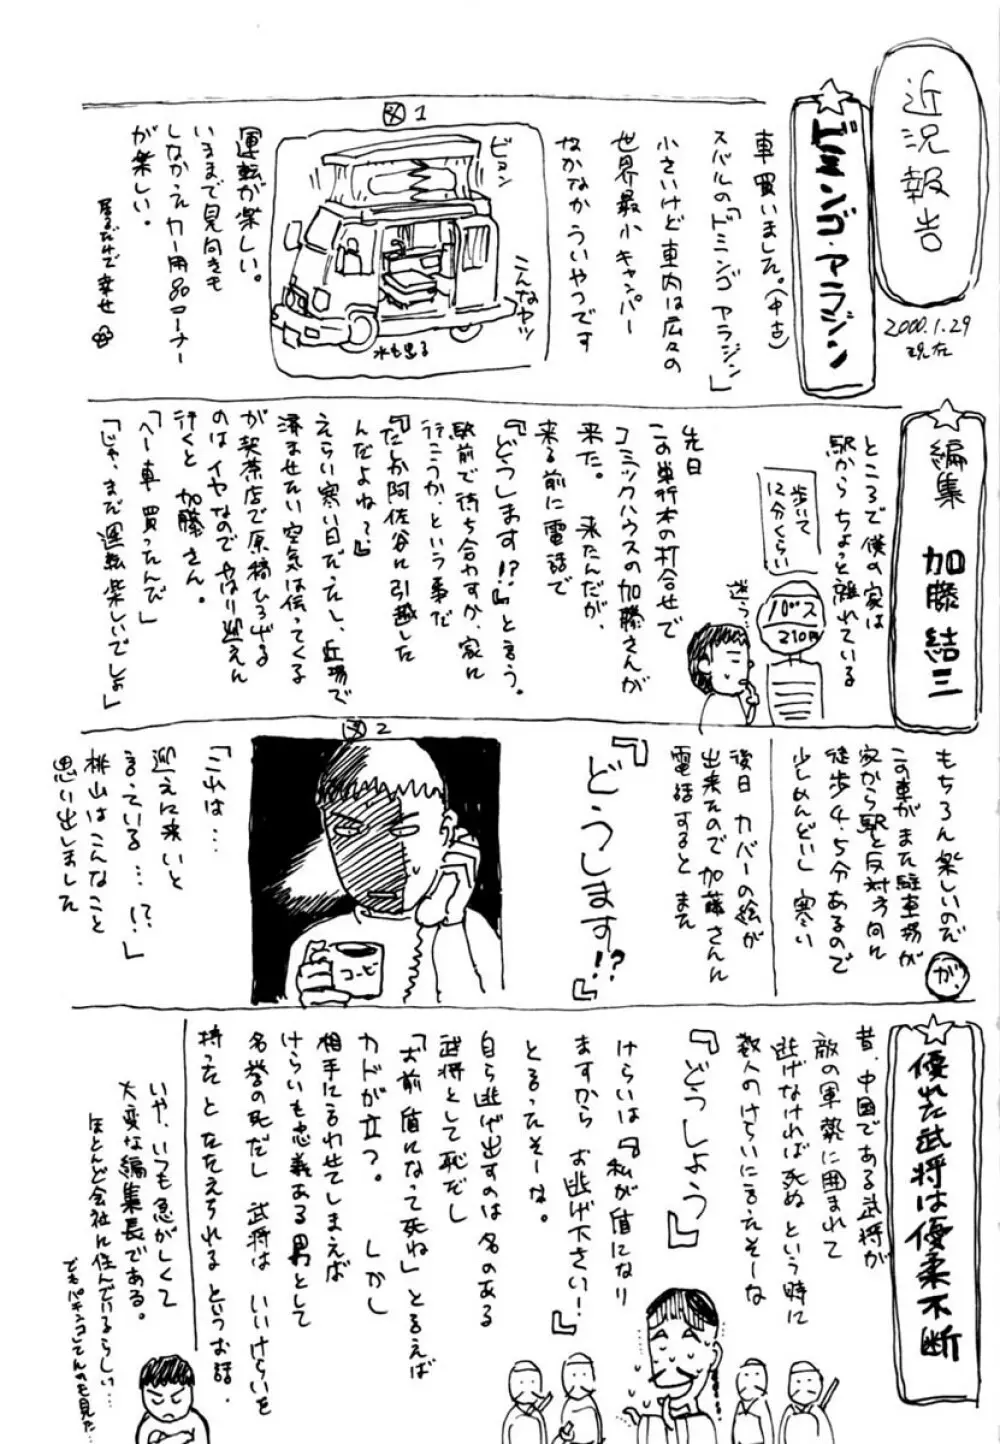 近況報告
2000.1.29
現在
ドミンゴ・アラジン
車買いました。(中古)
スバルの「ドミンゴアラジン」
小さいけど車内は広々の
世界最小キャンパー
なかなかういやつです
図1
ビヨン
こんなヤツ
水も出る
運転が楽しい。
いままで見向きも
しなかったカー用品コーナー
が楽しい。
居るだけで幸せ
編集 加藤結三
ところで僕の家は
駅からちょっと離れている
歩いて
12分くらい
バス
210円
迷う…
先日
この単行本の打合せで
コミックハウスの加藤さんが
来た。来たんだが、
来る前に電話で
『どうします!?』と言う。
駅前で待ち合わすか、家に
行こうか、という事だ
『たしか阿佐谷に引越した
んだよね?』
えらい寒い日だったし、近場で
済ませたい空気は伝ってくる
が喫茶店で原稿ひろげる
のはイヤなのでやはり迎えに
行くと 加藤さん。
「へー車買ったんだ」
「じゃ、まだ運転楽しいでしょ」
もちろん楽しいのだ
が、
この車がまた駐車場が
家から駅と反対方向に
徒歩4.5分あるので
少しめんどいし 寒い
後日 カバーの絵が
出来たので加藤さんに
電話すると また
『どうします!?』
図2
コーヒー
「これは…
迎えに来いと
言っている…!?」
桃山はこんなこと
思い出しました
優れた武将は優柔不断
昔、中国である武将が
敵の軍勢に囲まれて
逃げなければ死ぬ という時に
数人のけらいに言ったそーな
『どうしよう』
けらいは『私が盾になり
ますから お逃げ下さい!』
と言ったそーな。
自ら逃げ出すのは名のある
武将として恥だし
「お前盾になって死ね」と言えば
カドが立つ。 しかし
相手に言わせてしまえば
けらいも忠義ある男として
名誉の死だし 武将は いいけらいを
持ったとたたえられる というお話.
いや、いつも急がしくて
大変な編集長である。
ほとんど会社に住んでいるらしい…
でもパチンコしてんのも見た…